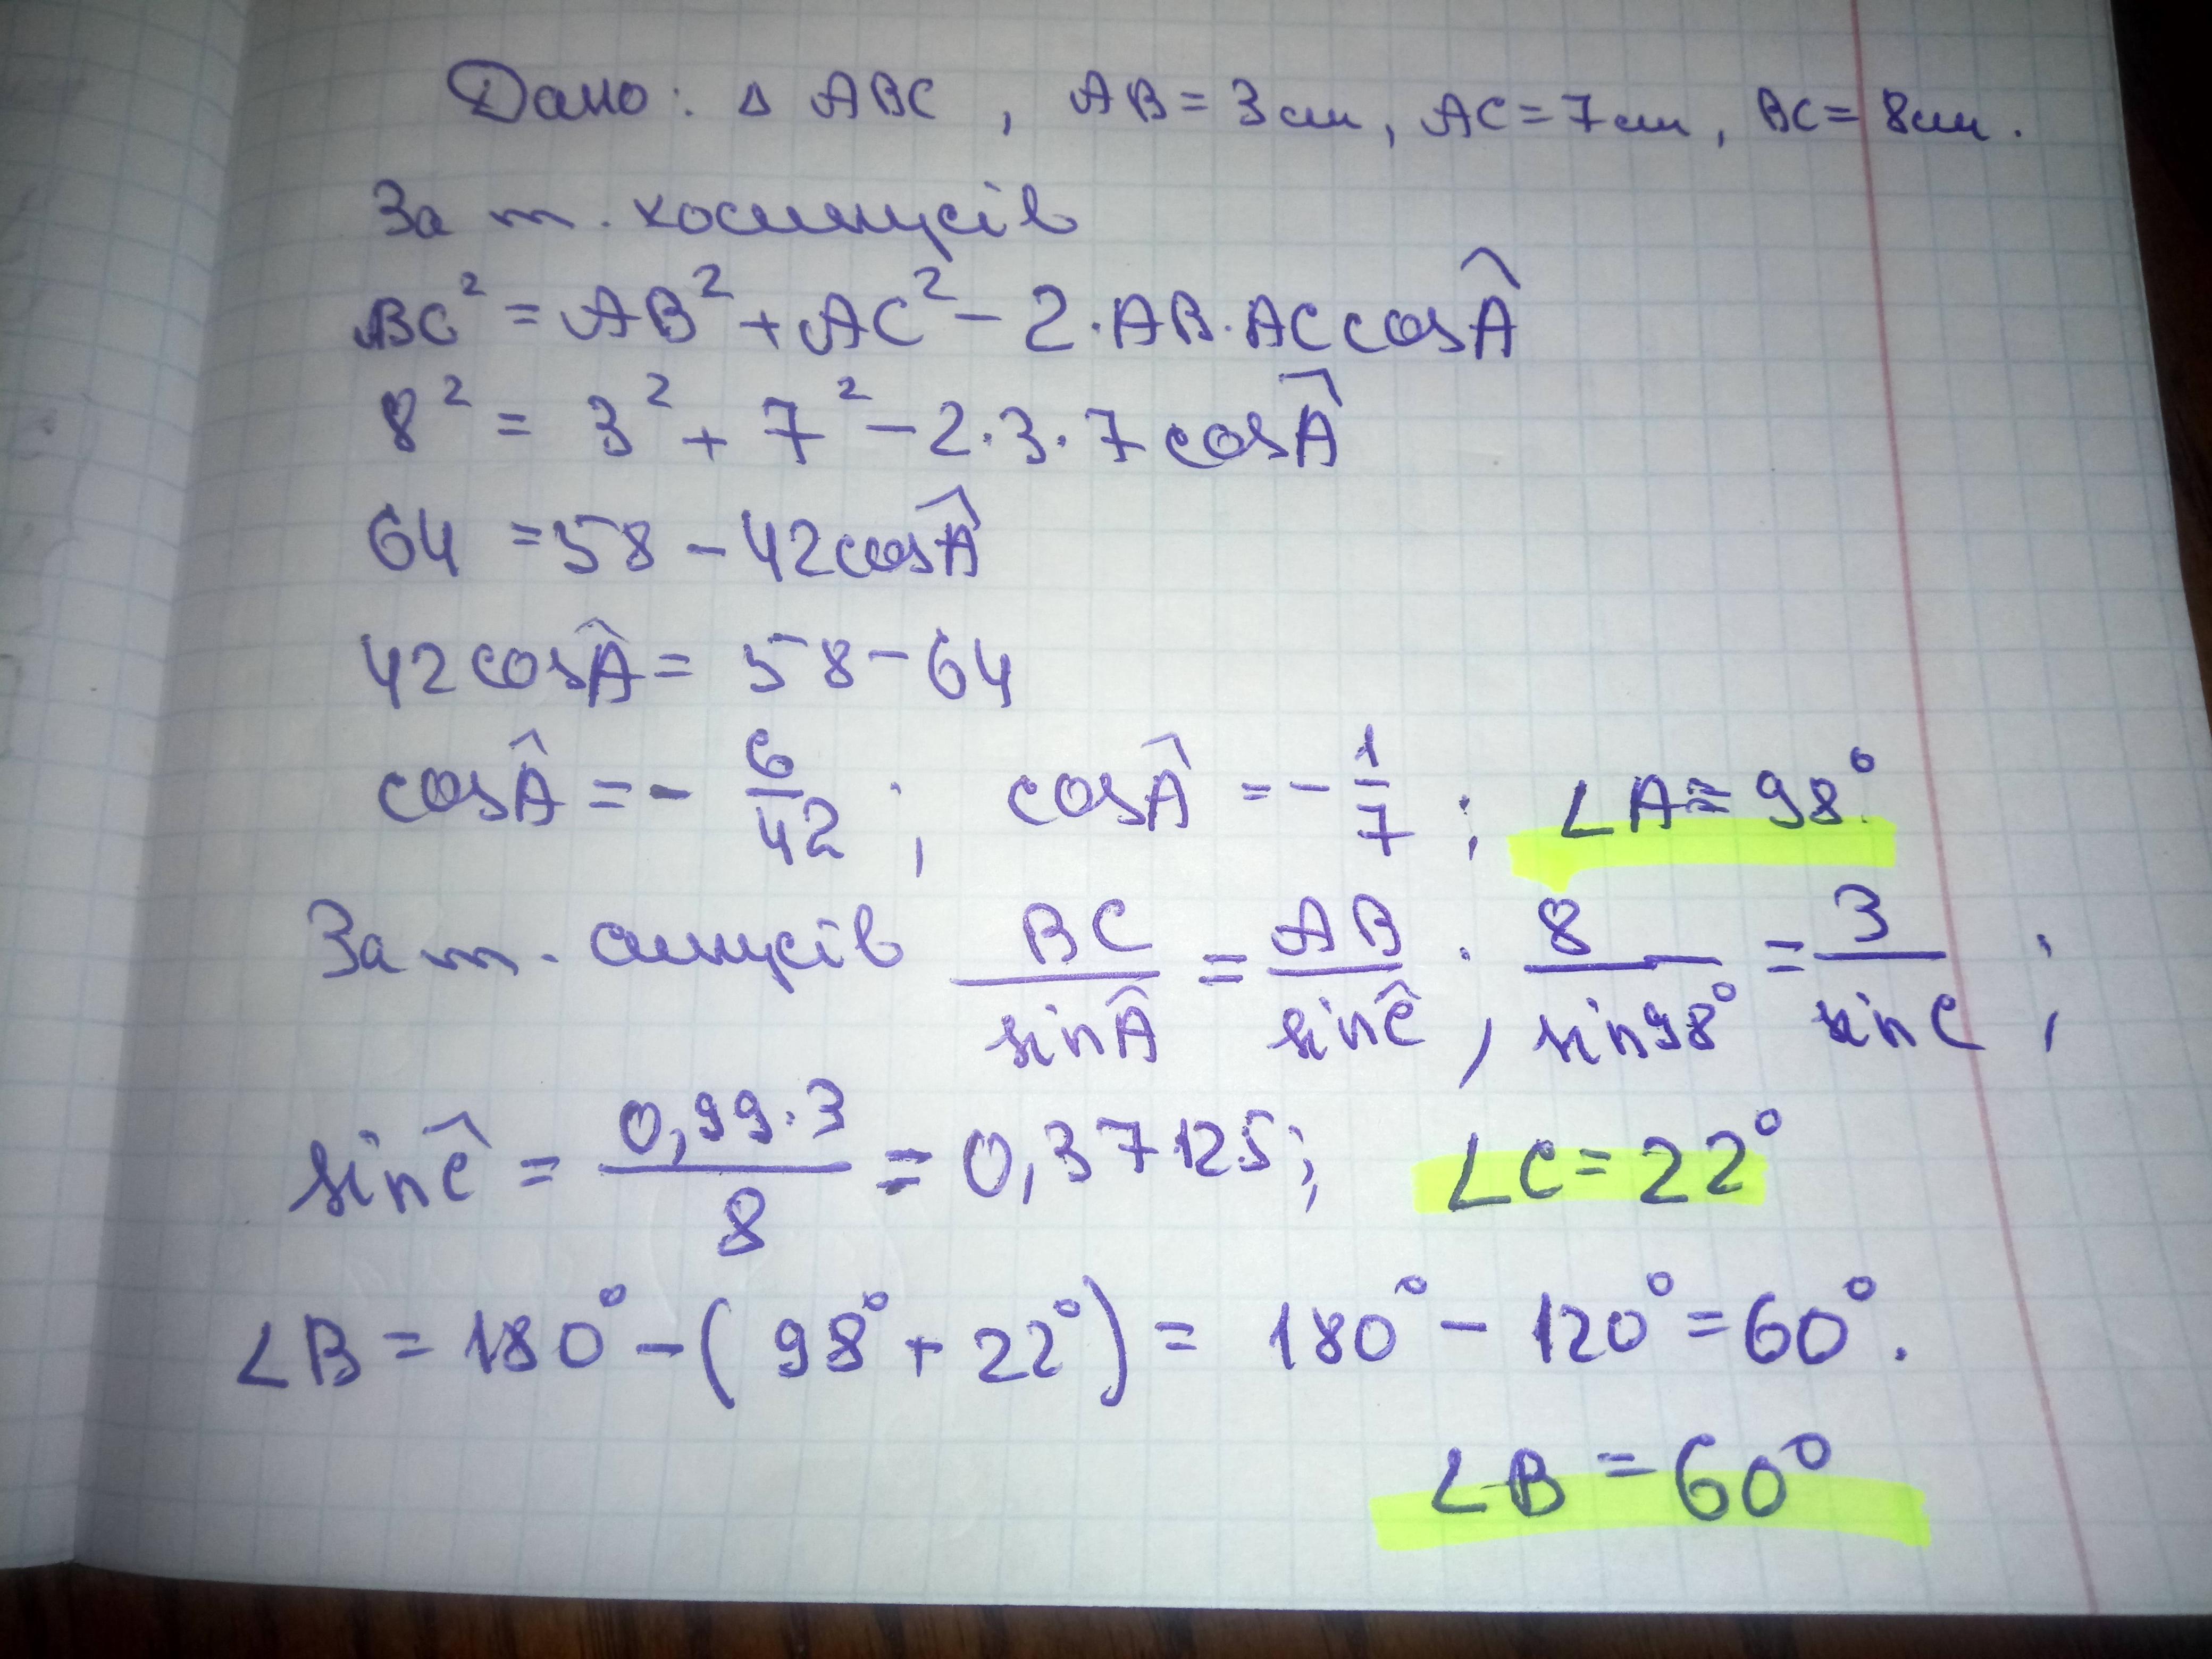 Дано: Δ ABC, AB = 3 см, AC = 7 см, BC = 8 см.
За т. косинусів
BC² = AB² + AC² - 2·AB·AC cosÂ
8² = 3² + 7² - 2·3·7 cosÂ
64 = 58 - 42cosÂ
42cosÂ = 58 - 64
cosÂ = - 6/42 ; cosÂ = - 1/7 ; ∠A ≈ 98°.
За т. синусів BC/sinÂ = AB/sinĈ ; 8/sin98° = 3/sinC ;
sinĈ = 0,99·3/8 = 0,37125; ∠C = 22°
∠B = 180° - (98° + 22°) = 180° - 120° = 60°.
∠B = 60°